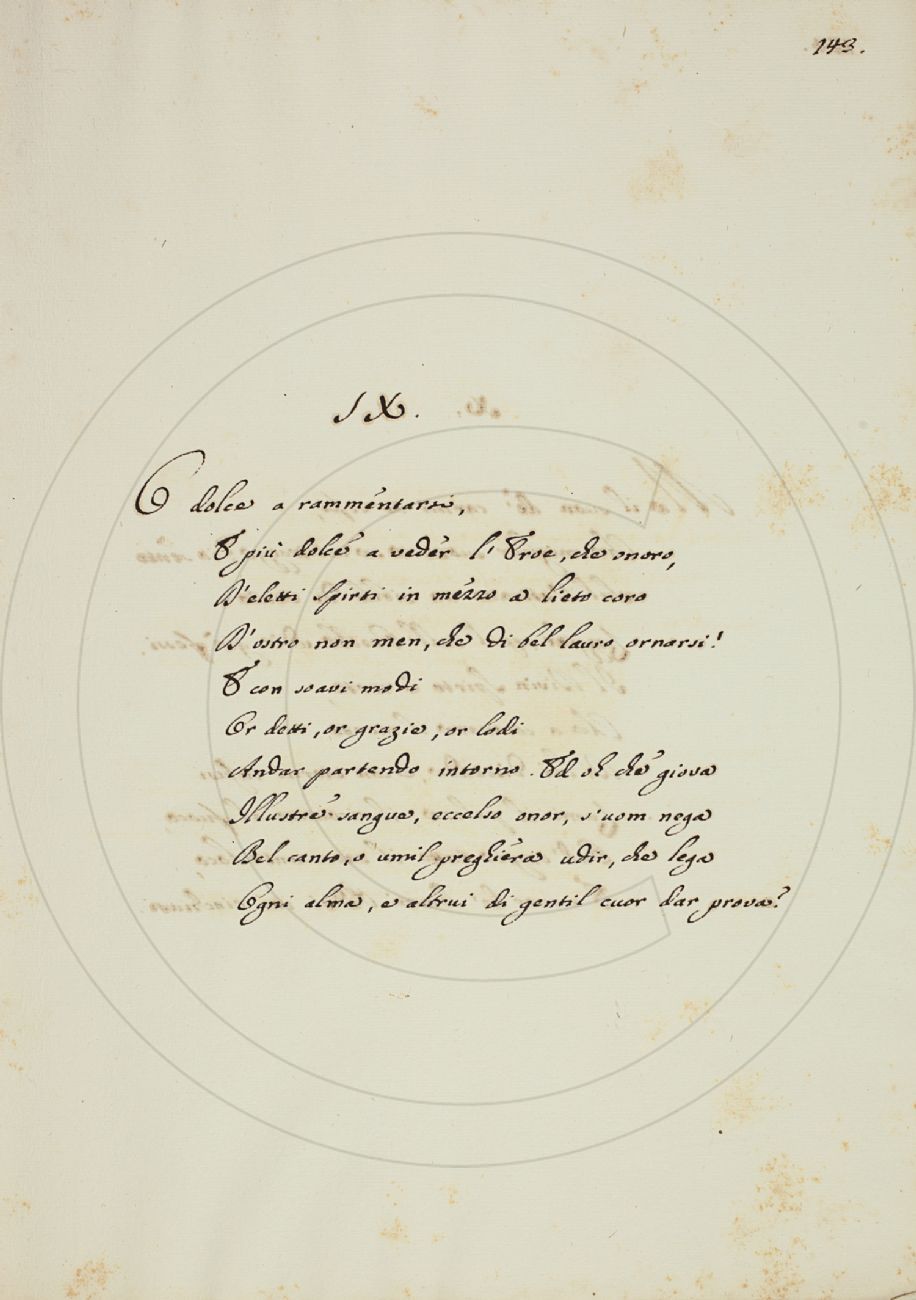 143.
IX.
O dolce a rammentarsi,
E più dolce a veder l' Eroe, che onoro,
D'eletti Spirti in mezzo a lieto coro
D'ostro non men, che di bel lauro ornarsi!
E con soavi modi
Or detti, or grazie, or lodi
Andar partendo intorno. Ed oh che giova
Illustre sangue, eccelso onor, s'uom nega
Bel canto, o umil preghiera udir, che lega
Ogni alma, e altrui di gentil cuor dar prova?